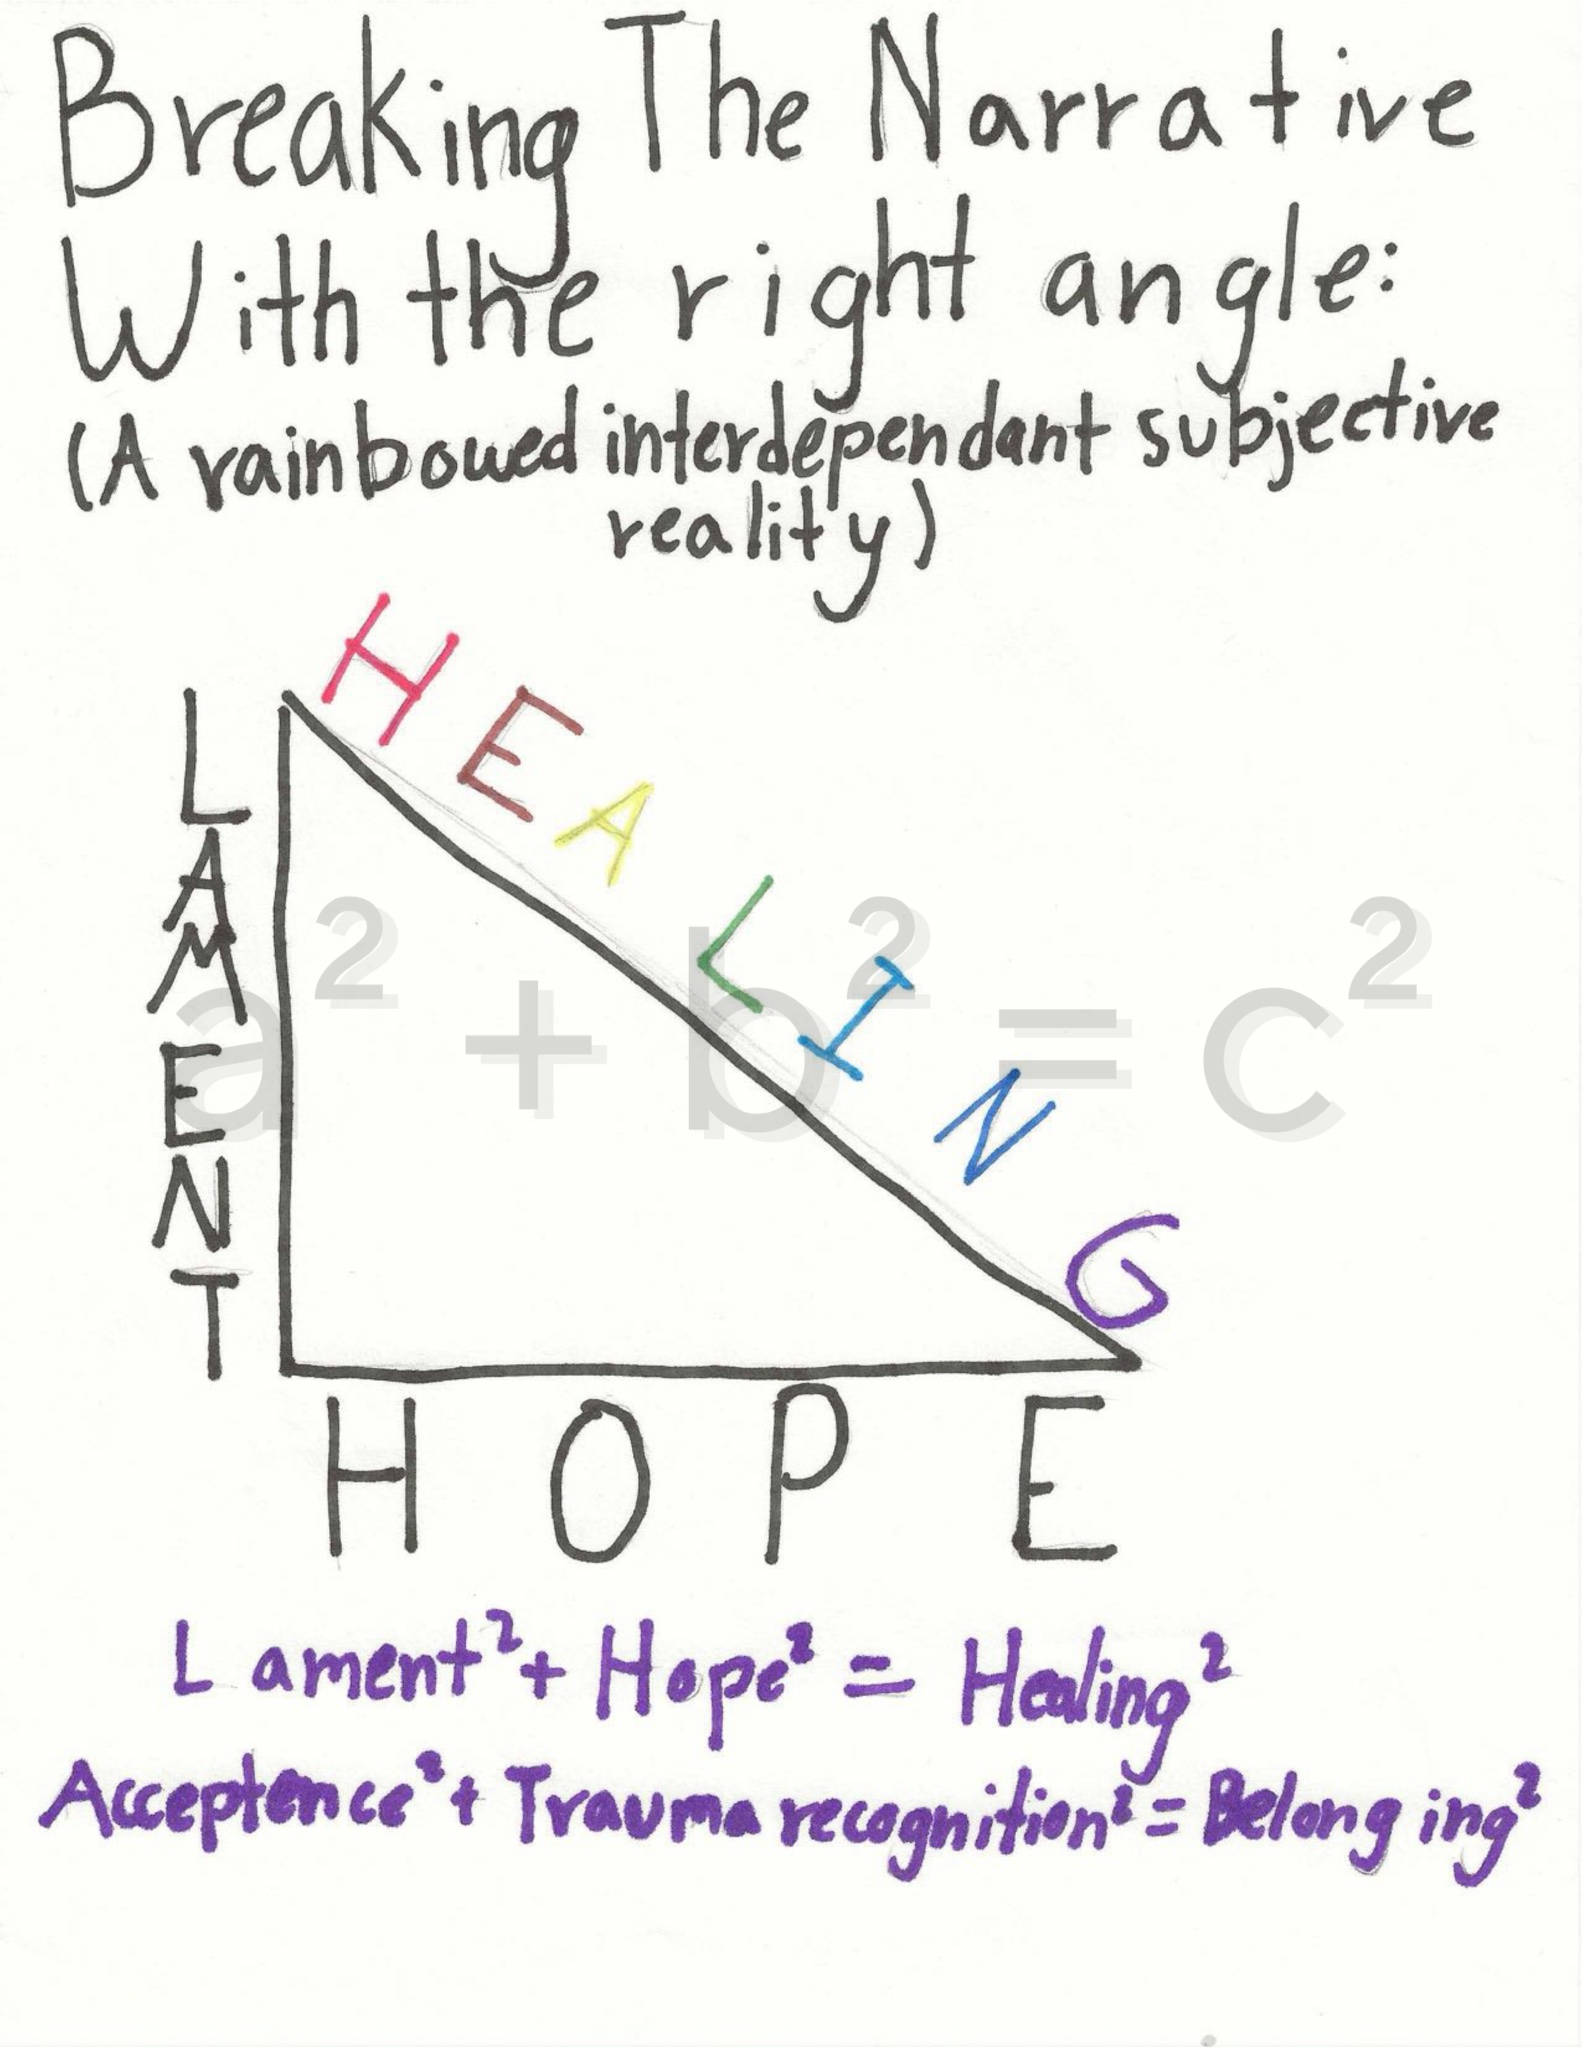 Breaking The Narrative
With the right angle:
(A rainbowed interdependant subjective
reality)
HEALING
LAMENT
a² + b² = c²
HOPE
Lament² + Hope² = Healing²
Acceptence² + Trauma recognition² = Belonging²